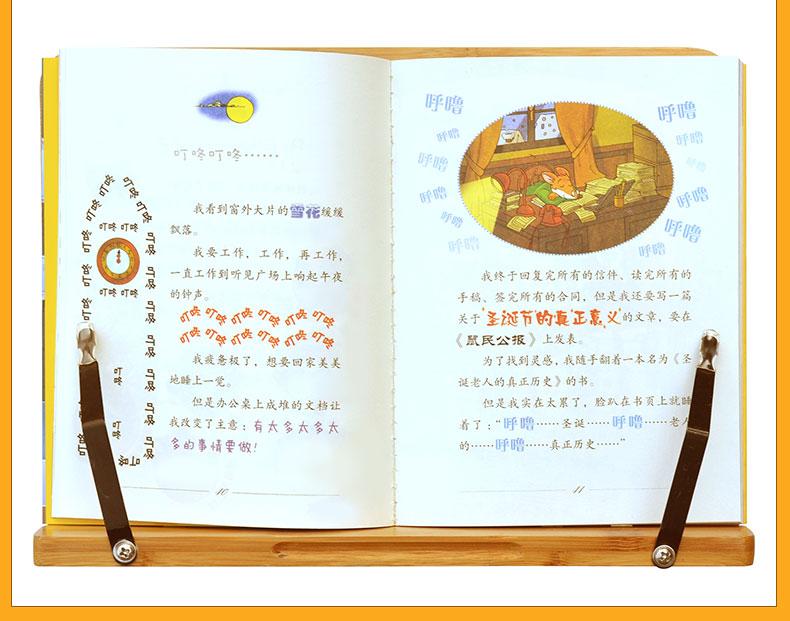 叮咚叮咚……
叮咚 叮咚 叮咚 叮咚 叮咚
叮咚 叮咚
叮咚 叮咚
叮咚 叮咚 叮咚
叮咚 叮咚 叮咚 叮咚
叮咚 叮咚
我看到窗外大片的雪花缓缓
飘落。
我要工作，工作，再工作，
一直工作到听见广场上响起午夜
的钟声。
叮咚 叮咚 叮咚 叮咚 叮咚 叮咚
叮咚 叮咚 叮咚 叮咚 叮咚 叮咚
我疲惫极了，想要回家美美
地睡上一觉。
但是办公桌上成堆的文档让
我改变了主意：有太多太多太
多的事情要做！
10
呼噜 呼噜
呼噜 呼噜
呼噜
呼噜 呼噜
呼噜 呼噜
呼噜 呼噜
我终于回复完所有的信件、读完所有的
手稿、签完所有的合同，但是我还要写一篇
关于“圣诞节的真正意义”的文章，要在
《鼠民公报》上发表。
为了找到灵感，我随手翻着一本名为《圣
诞老人的真正历史》的书。
但是我实在太累了，脸趴在书页上就睡
着了：“呼噜……圣诞……呼噜……老人
的……呼噜……真正历史……”
11